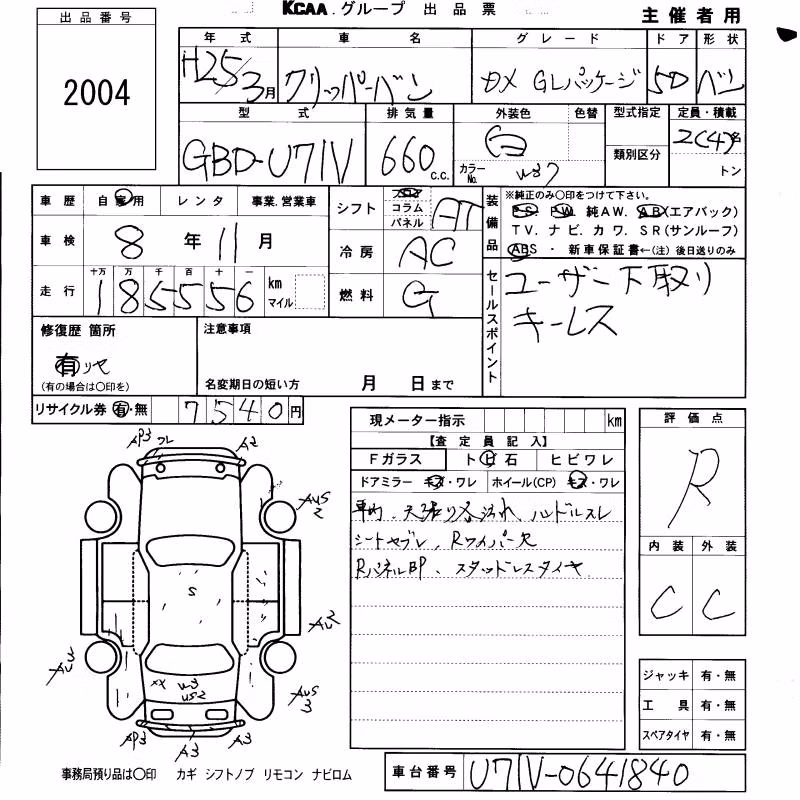 KCAA.グループ 出品票
主催者用
出品番号
2004
年式 車名 グレード ドア 形状
H25/3月 クリッパーバン DX GLパッケージ 5D バン
型式 排気量 外装色 色替 型式指定 定員・積載
GBD-U71V 660 c.c. 白 カラーNo. 類別区分 2(4)名 トン
車歴 自家用 レンタ 事業.営業車
シフト フロア コラム パネル AT
装備品
※純正のみ〇印をつけて下さい。
P.S. P.W. 純AW. A.B(エアバック)
TV. ナビ. カワ. SR(サンルーフ)
ABS ・ 新車保証書←(注)後日送りのみ
車検 8年11月
冷房 AC
走行 十万 万 千 百 十 一
185556 km マイル
燃料 G
セールスポイント
ユーザー下取り
キーレス
修復歴 箇所
有 リヤ
(有の場合は〇印を)
注意事項
名変期日の短い方 月 日まで
リサイクル券 有・無 7540円
現メーター指示 km
【査定員記入】
Fガラス トビ石 ヒビワレ
ドアミラー キズ・ワレ ホイール(CP) キズ・ワレ
車内、天張り各汚れ、ハンドルスレ
シートヤブレ、Rワイパー欠
RパネルBP、スタッドレスタイヤ
評価点
R
内装 外装
C C
ジャッキ 有・無
工具 有・無
スペアタイヤ 有・無
AP3 フレ A2
AUS2
S
AU2
AU3
XX W3
US2
AUS3
AP3 A3 A3
事務局預り品は〇印 カギ シフトノブ リモコン ナビロム
車台番号 U71V-0641840